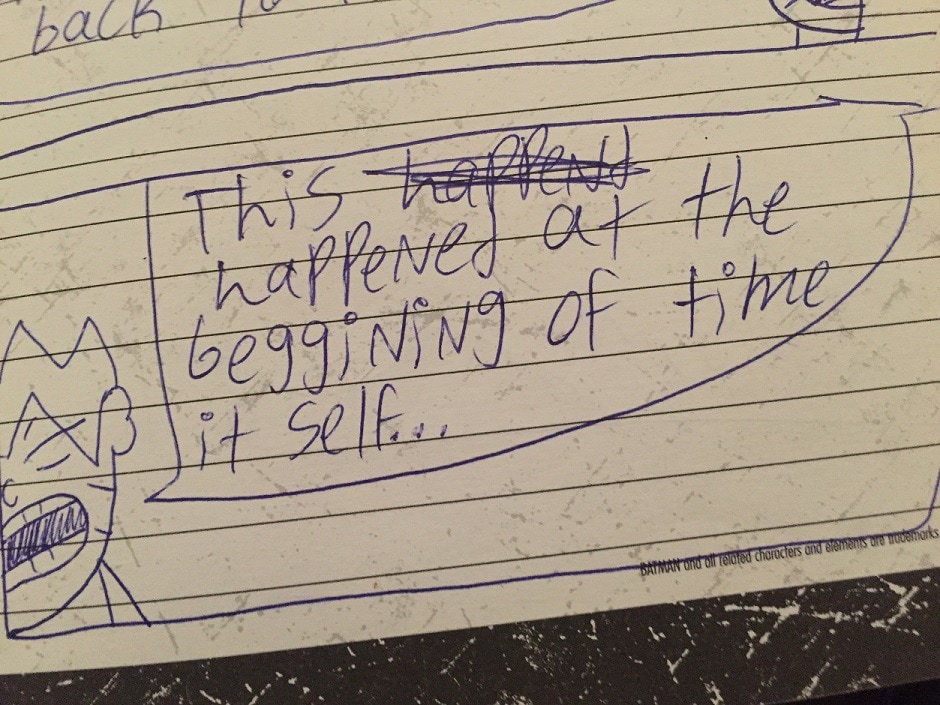 back to
This happend
happened at the
beggining of time
it self...
BATMAN and all related characters and elements are trademarks